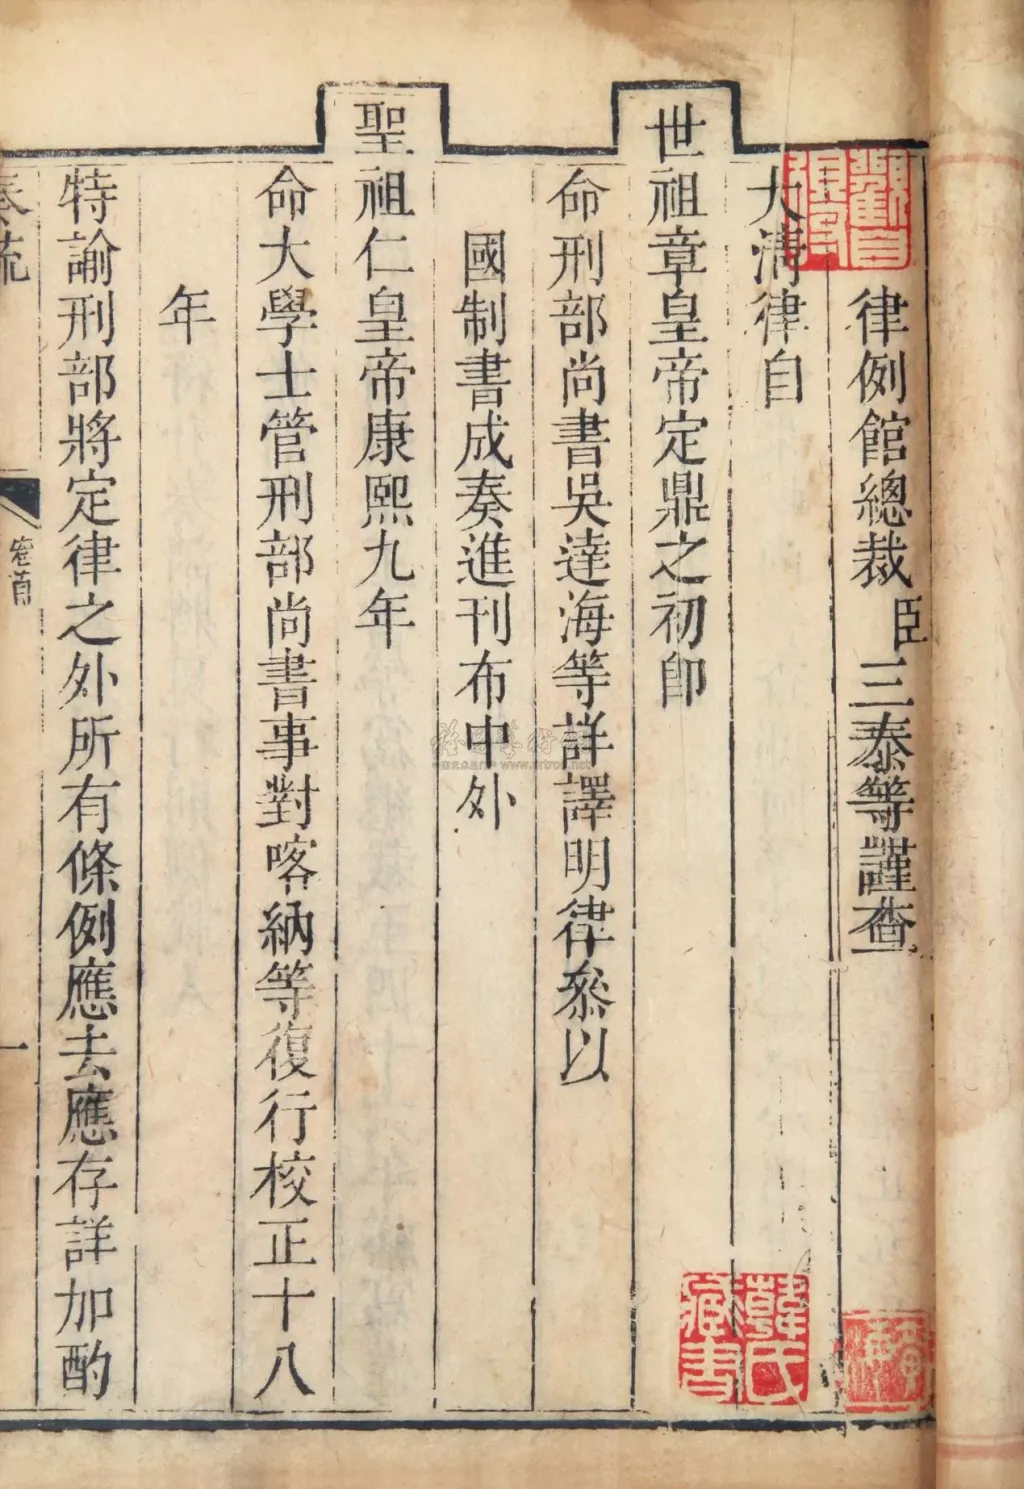 律例館總裁臣三泰等謹查
大清律自
世祖章皇帝定鼎之初卽
命刑部尚書吳達海等詳譯明律參以
國制書成奏進刊布中外
聖祖仁皇帝康熙九年
命大學士管刑部尚書事對喀納等復行校正十八
年
特諭刑部將定律之外所有條例應去應存詳加酌
奏疏
一
韓氏
藏書
www.artron.net